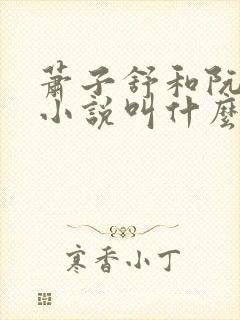 蕭子舒和阮
小說叫什麼
寒香小丁